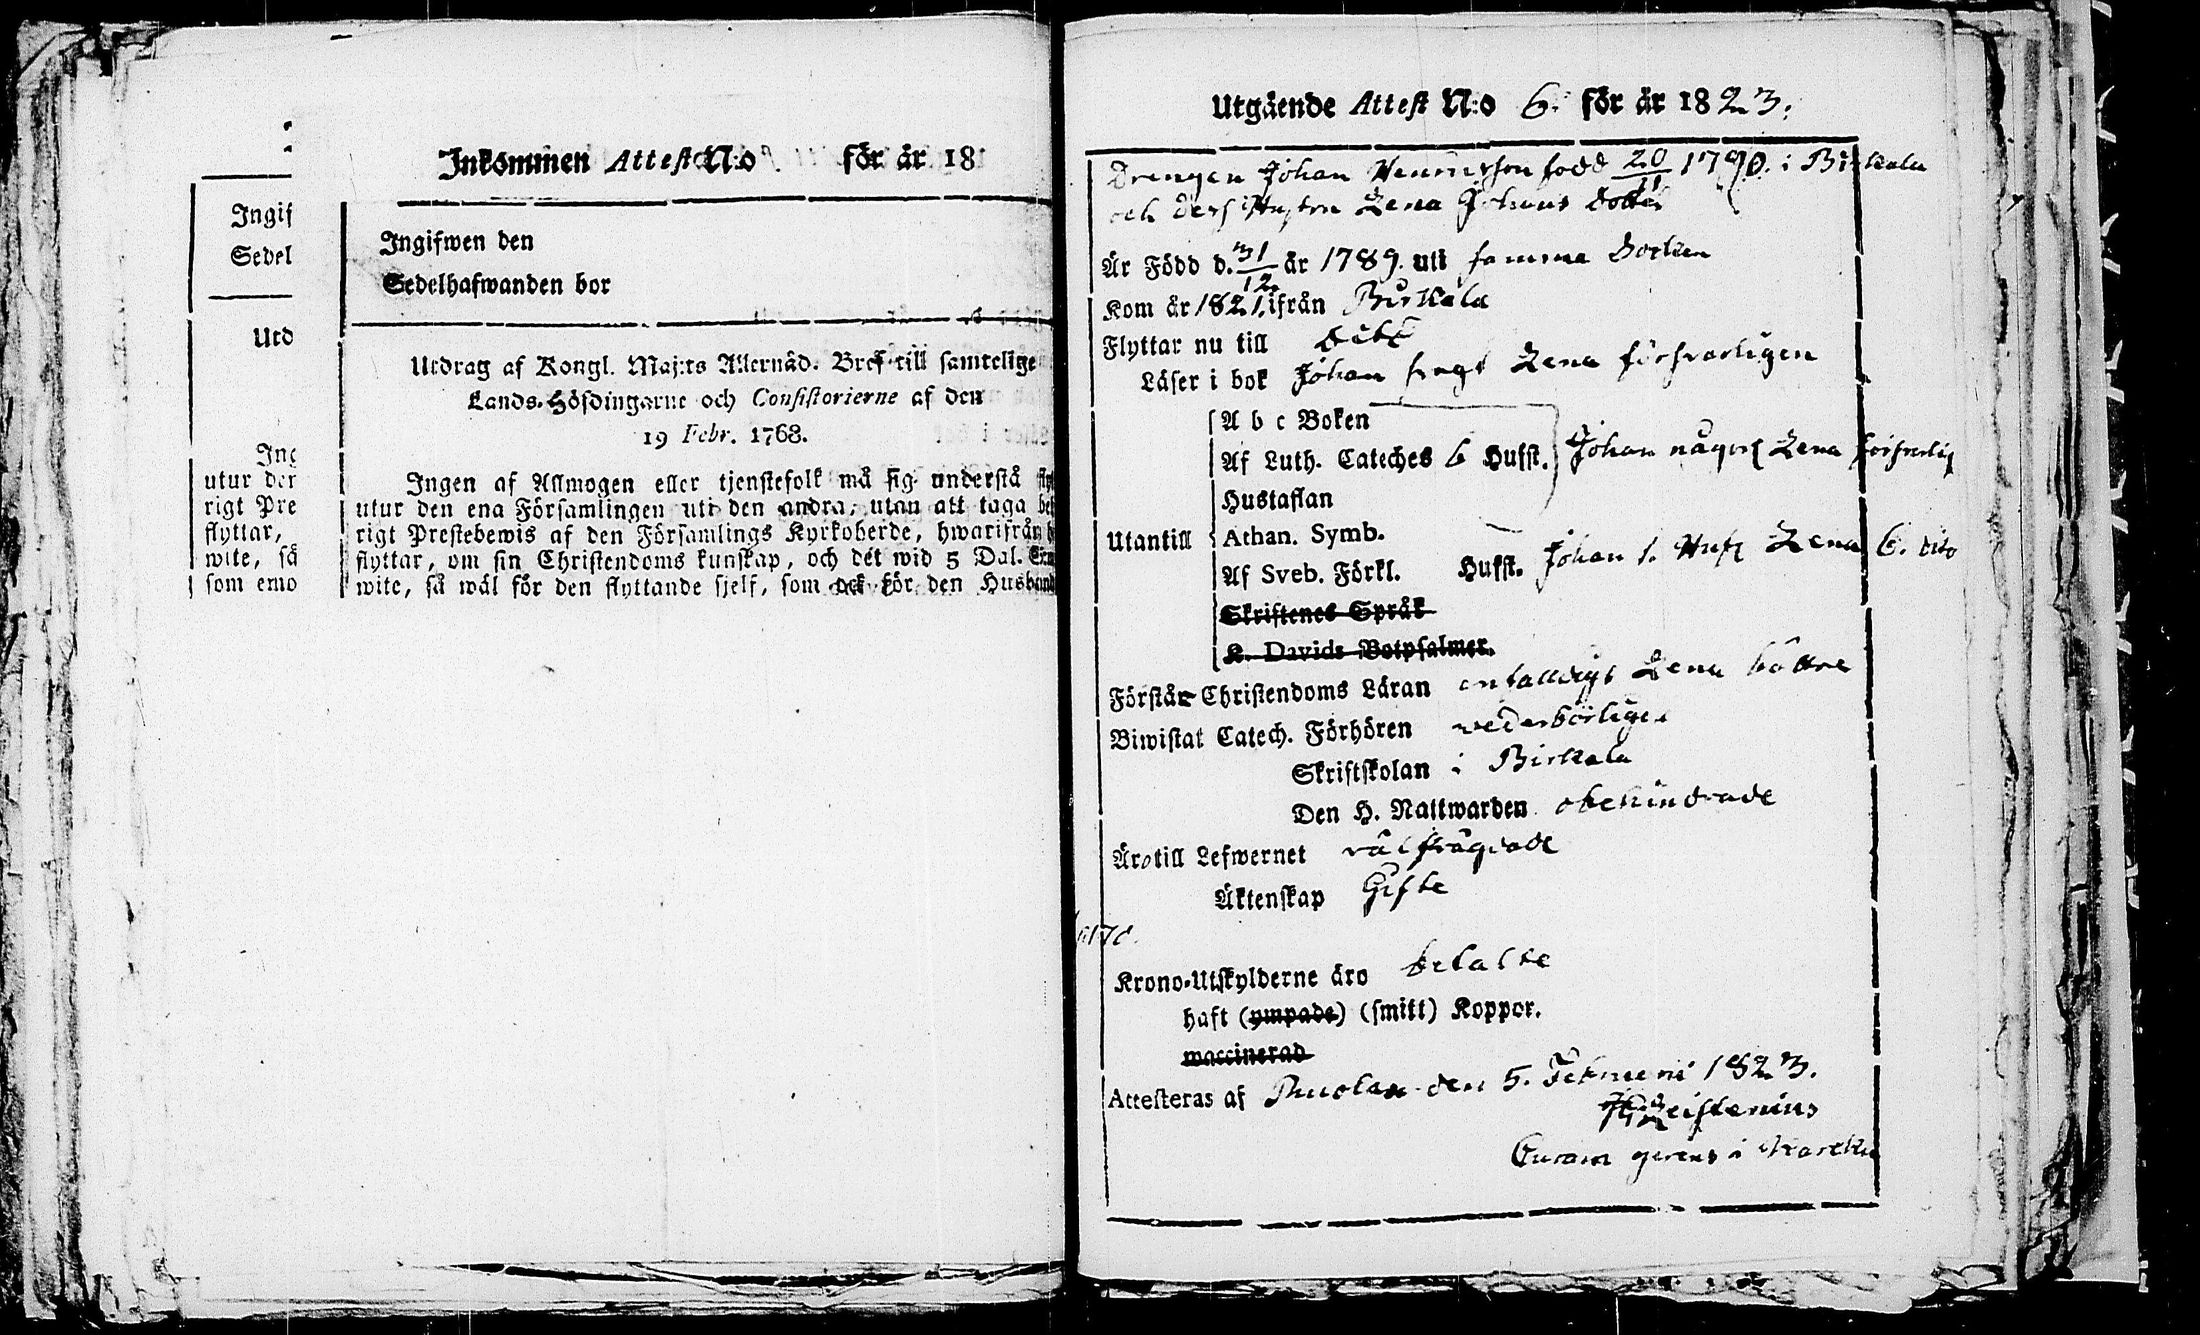 Inkommen Attest N:o för år 18
Ingif
Sedel
Utd
Ing
utur der
rigt Pre
flyttar,
wite, så
som emo
Ingifwen den
Sedelhafwanden bor
Utdrag af Kongl. Maj:ts Allernåd. Bref till samtelige
Lands-Höfdingarne och Consistorierne af den
19 Febr. 1768.
Ingen af Allmogen eller tjenstefolk må sig understå
utur den ena Församlingen uti den andra, utan att taga
rigt Prestebewis af den Församlings Kyrkoherde, hwarifrån
flyttar, om sin Christendoms kunskap, och det wid 5 Dal.
wite, så wäl för den flyttande sjelf, som ock för den Husbond
Utgående Attest N:o 6. för år 1823.
Drengen Johan Henricsson född 20/11 1790. i Birkala
och dess Hustru Lena Johans dotter
Är Född d. 31/12 år 1789. uti samma Socken
Kom år 1821. ifrån Birkala
Flyttar nu till
Läser i bok Johan svagt Lena försvarligen
A b c Boken
Af Luth. Cateches 6 Hufst. Johan någorl Lena försvarlig
Hustaflan
Utantill Athan. Symb.
Af Sveb. Förkl. Hufst. Johan 1. Hufs Lena 6. dito
Skriftenes Språk
K. Davids Botpsalmer.
Förstår Christendoms Läran enfalldigt Lena bättre
Biwistat Catech. Förhören vederbörligen
Skriftskolan i Birkala
Den H. Nattwarden obehindrade
Äro till Lefwernet välfrägdade
Äktenskap Gifte
Krono-Utskylderne äro betalte
haft (ympade) (smitt) Koppor.
waccinerad
Attesteras af den 5. Februarii 1823.
Leistenius
Curam gerens i Karcku